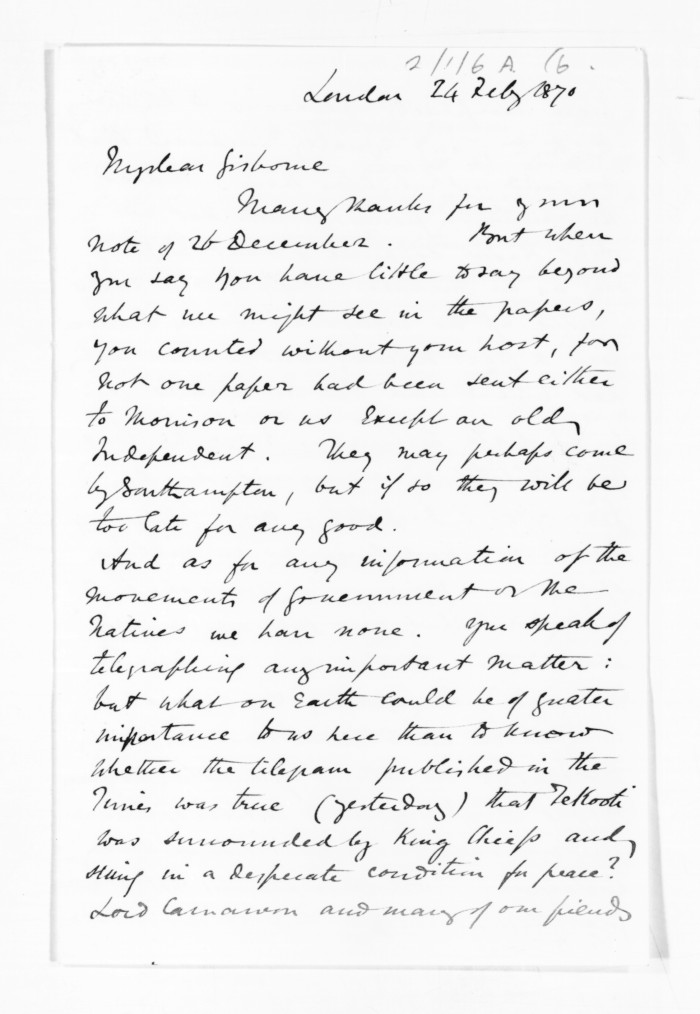 2/1/6A (6.
London 24 Feby 1870
My dear Gisborne
Many thanks for your
note of 26 December. But when
you say you have little to say beyond
what we might see in the papers,
you counted without your host, for
not one paper had been sent either
to Morrison or us Except an old
Independent. They may perhaps come
by Southampton, but if so they will be
too late for any good.
And as for any information of the
movements of Government or the
Natives we have none. You speak of
telegraphing any important matter:
but what on Earth could be of greater
importance to us here than to know
whether the telegram published in the
Times was true (yesterday) that Te Kooti
was surrounded by King Chiefs and
suing in a desperate condition for peace?
Lord Carnarvon and many of our friends